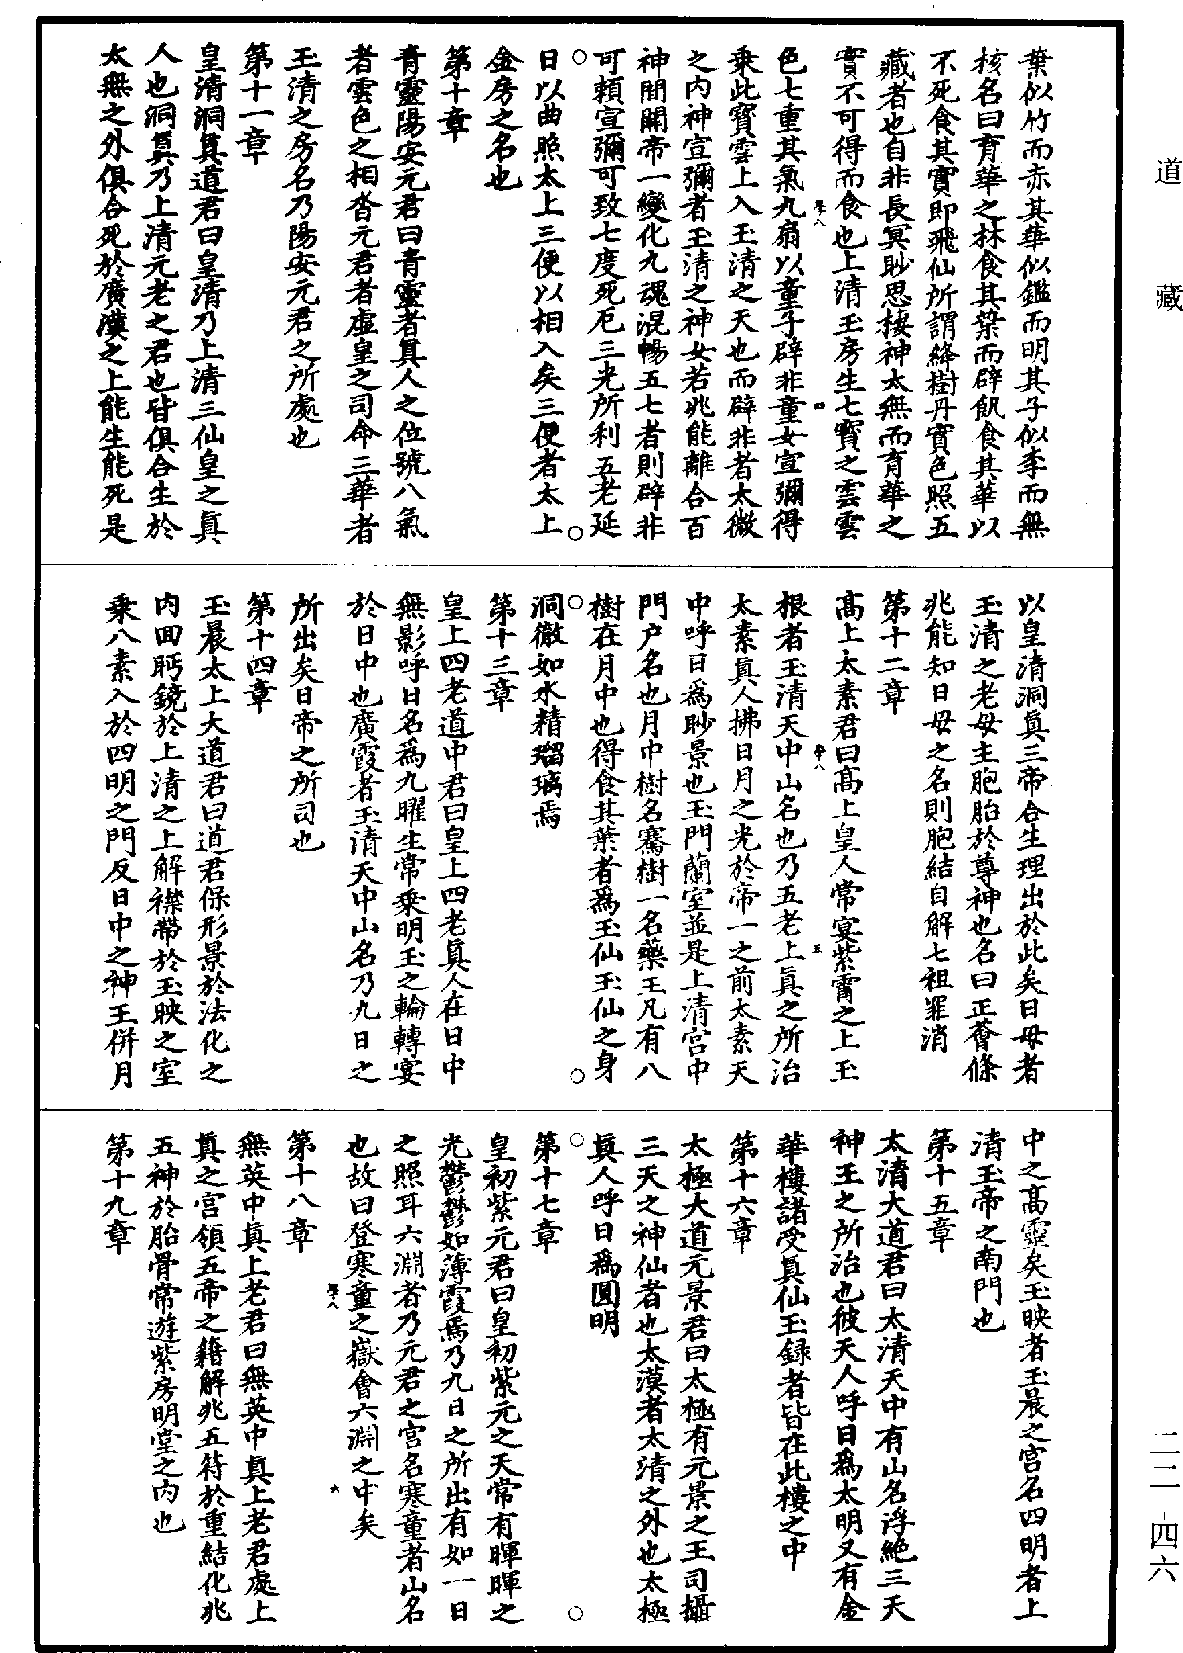 道藏
葉似竹而赤其華似鑑而明其子似李而無
核名曰育華之林食其葉而辟飢食其華以
不死食其實即飛仙所謂絳樹丹實色照五
藏者也自非長冥眇思棲神太無而育華之
實不可得而食也上清玉房生七寶之雲雲
色七重其氣九扇以童子辟非童女宣彌得
乘此寶雲上入玉清之天也而辟非者太微
之內神宣彌者玉清之神女若兆能離合百
神開關帝一變化九魂混暢五七者則辟非
可賴宣彌可致七度死厄三光所利五老延
日以曲照太上三便以相入矣三便者太上
金房之名也
第十章
青靈陽安元君曰青靈者真人之位號八氣
者雲色之相沓元君者虛皇之司命三華者
玉清之房名乃陽安元君之所處也
第十一章
皇清洞真道君曰皇清乃上清三仙皇之真
人也洞真乃上清元老之君也皆俱合生於
太無之外俱合死於廣漠之上能生能死是
以皇清洞真三帝合生理出於此矣日母者
玉清之老母主胞胎於尊神也名曰正薈條
兆能知日母之名則胞結自解七祖罪消
第十二章
高上太素君曰高上皇人常宴紫霄之上玉
根者玉清天中山名也乃五老上真之所治
太素真人拂日月之光於帝一之前太素天
中呼日為眇景也玉門蘭室並是上清宮中
門戶名也月中樹名騫樹一名藥王凡有八
樹在月中也得食其葉者為玉仙玉仙之身
洞徹如水精瑠璃焉
第十三章
皇上四老道中君曰皇上四老真人在日中
無影呼日名為九曜生常乘明玉之輪轉宴
於日中也廣霞者玉清天中山名乃九日之
所出矣日帝之所司也
第十四章
玉晨太上大道君曰道君保形景於法化之
內回眄鏡於上清之上解襟帶於玉映之室
乘八素入於四明之門反日中之神王併月
中之高靈矣玉映者玉晨之宮名四明者上
清玉帝之南門也
第十五章
太清大道君曰太清天中有山名浮絕三天
神王之所治也彼天人呼日為太明又有金
華樓諸受真仙玉録者皆在此樓之中
第十六章
太極大道元景君曰太極有元景之王司攝
三天之神仙者也太漠者太清之外也太極
真人呼日為圓明
第十七章
皇初紫元君曰皇初紫元之天常有暉暉之
光鬱鬱如薄霞焉乃九日之所出有如一日
之照耳六淵者乃元君之宮名寒童者山名
也故曰登寒童之嶽會六淵之中矣
第十八章
無英中真上老君曰無英中真上老君處上
真之宮領五帝之籍解兆五符於重結化兆
五神於胎骨常遊紫房明堂之內也
第十九章
二二-四六